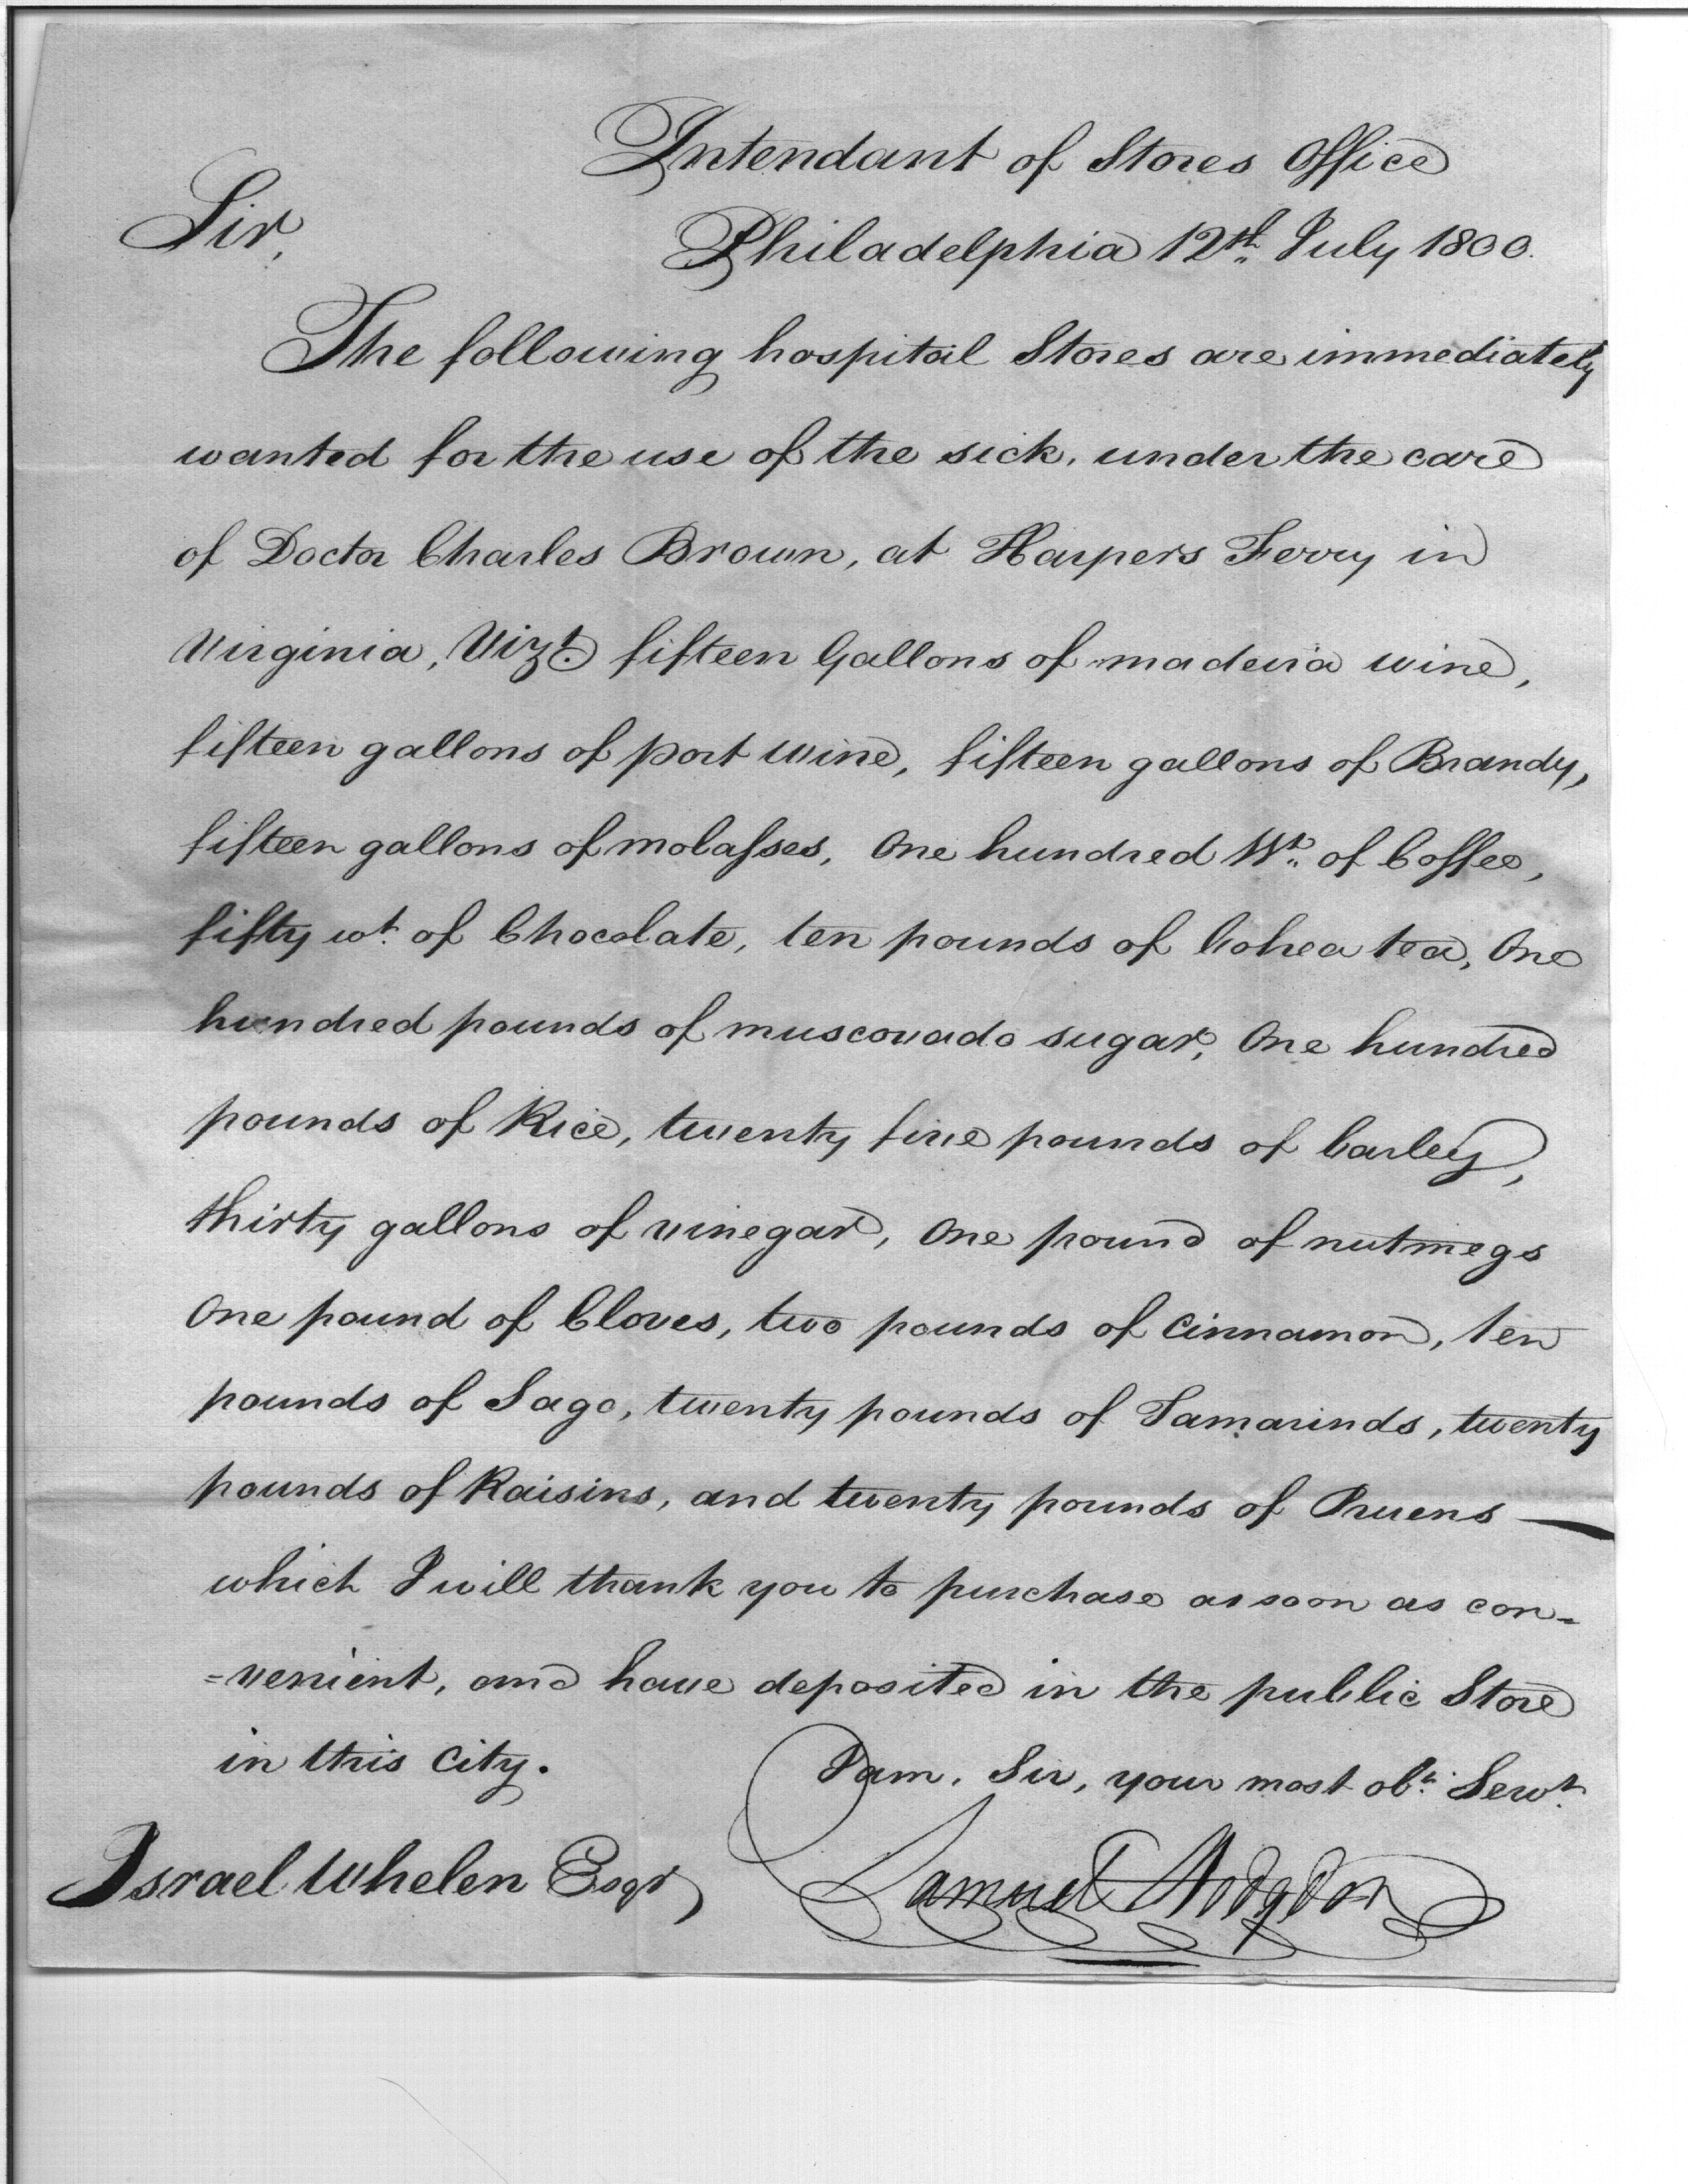 Intendant of Stores Office
Sir,
Philadelphia 12th July 1800.
The following hospital Stores are immediately
wanted for the use of the sick, under the care
of Doctor Charles Brown, at Harpers Ferry in
Virginia, Vizt. fifteen Gallons of madeira wine,
fifteen gallons of port wine, fifteen gallons of Brandy,
fifteen gallons of molasses, One hundred Wt. of Coffee,
fifty wt. of Chocolate, ten pounds of bohea tea, One
hundred pounds of muscovado sugar, One hundred
pounds of Rice, twenty five pounds of barley,
thirty gallons of vinegar, One pound of nutmegs
One pound of Cloves, two pounds of Cinnamon, ten
pounds of Sago, twenty pounds of Tamarinds, twenty
pounds of Raisins, and twenty pounds of Pruens —
which I will thank you to purchase as soon as con=
=venient, and have deposited in the public Store
in this City.
I am, Sir, your most obt. Servt.
Israel Whelen Esqr
Samuel Hodgdon